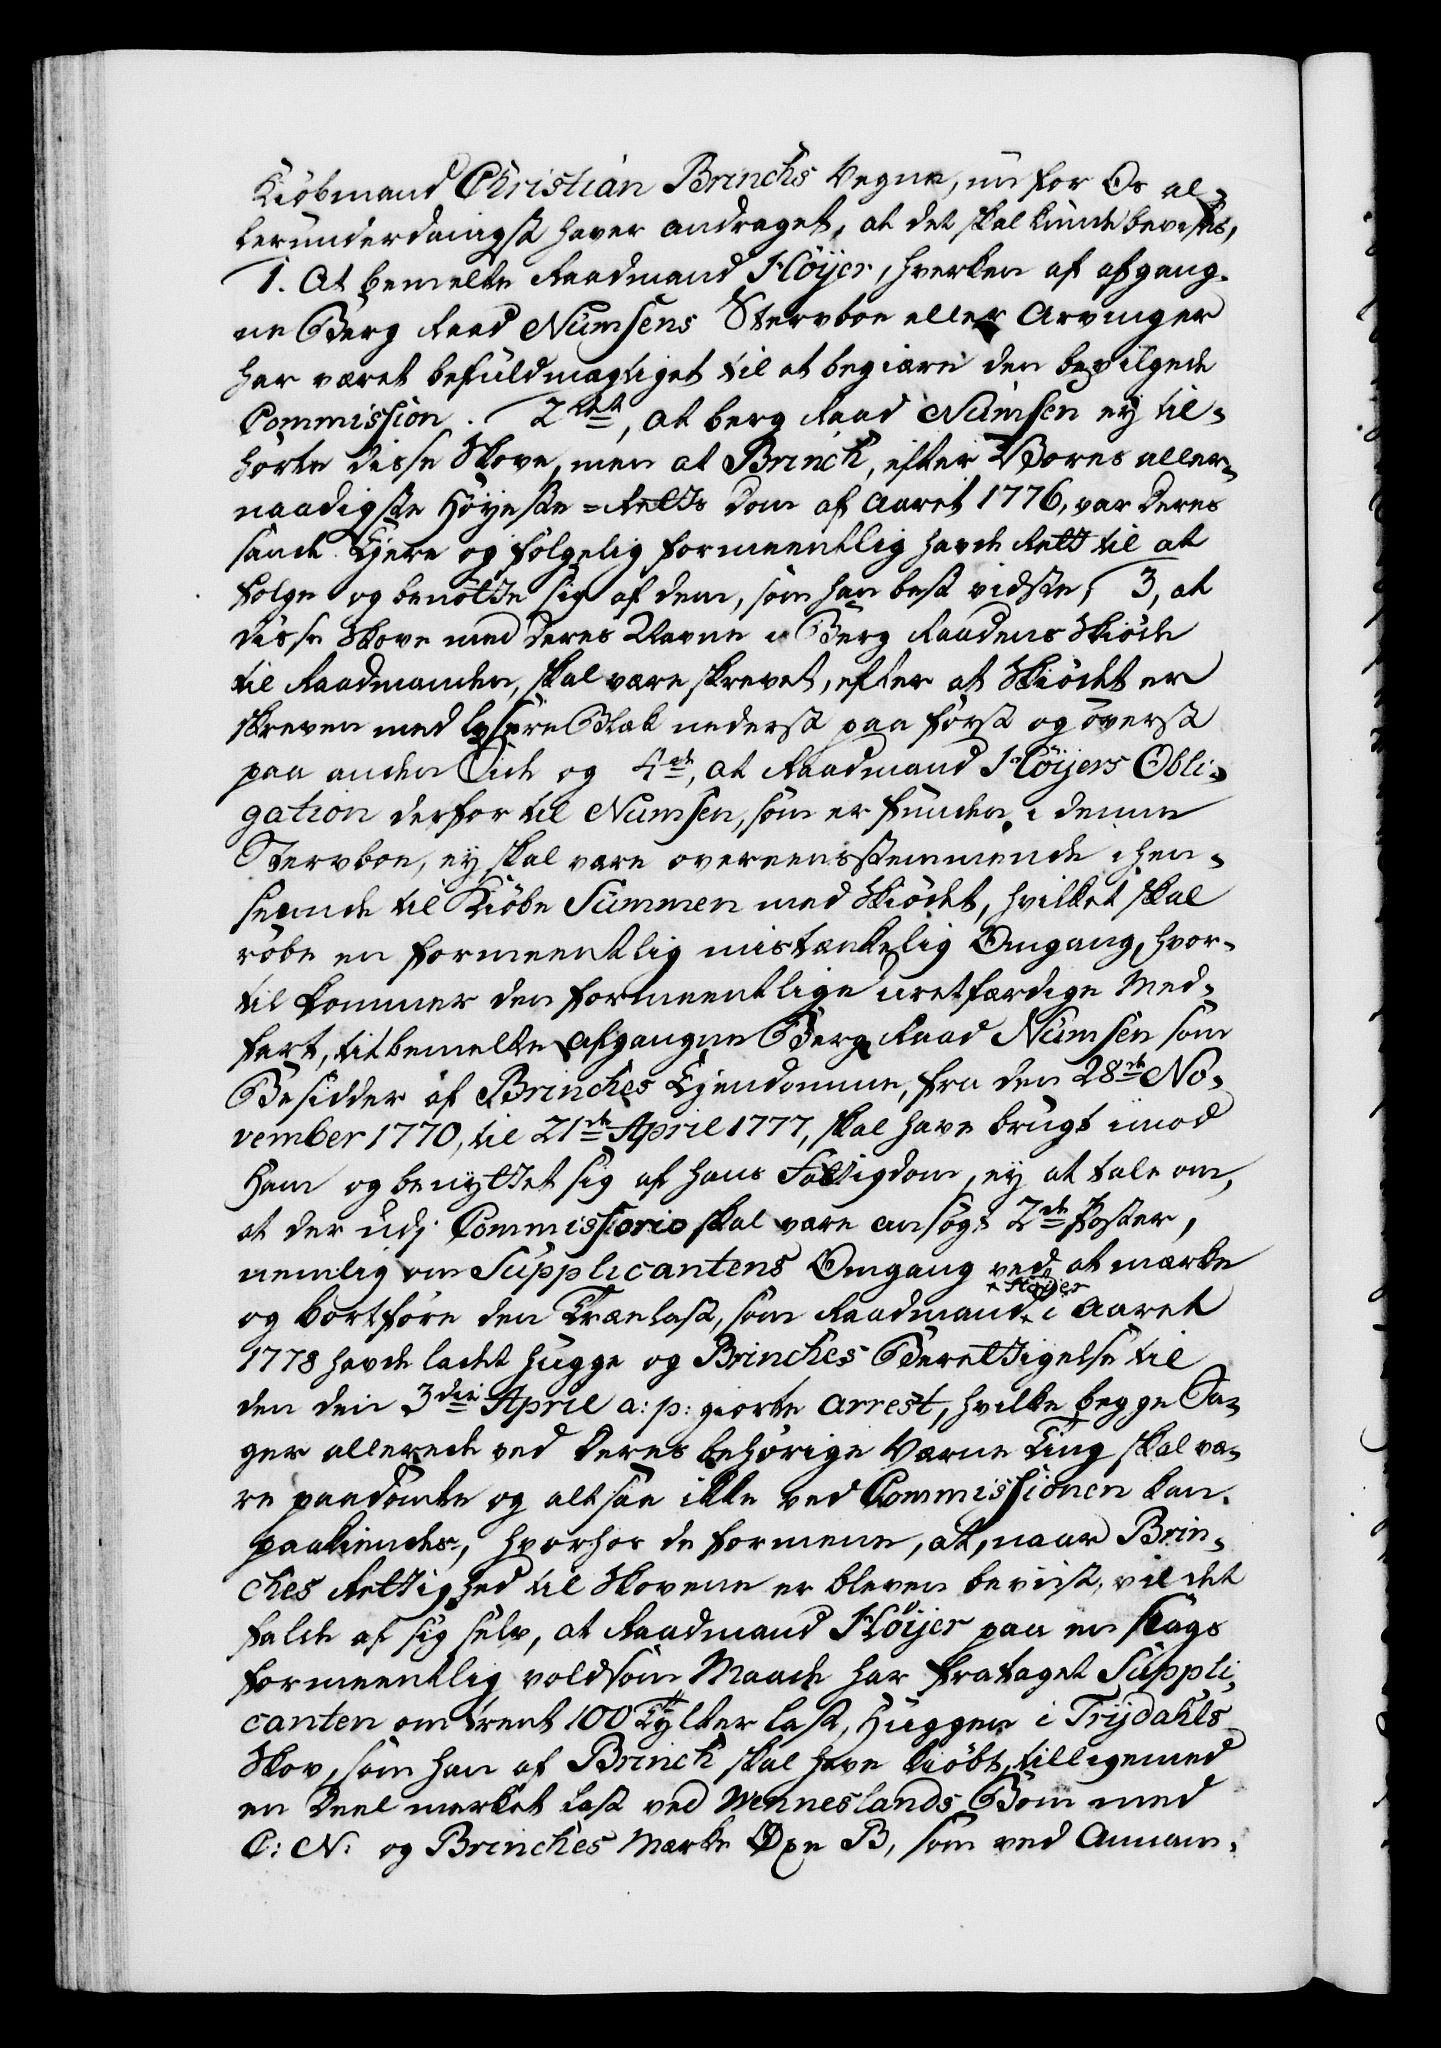 Kiøbmand Christian Brinchs Vegne, nu for Os al-
lerunderdanigst haver andraget, at det skal kunde bevises,
1. At bemelte Raadmand Höÿer, hverken af afgang-
ne Berg Raad Numsens Stervboe eller Arvinger
har været befuldmægtiget til at begiære den bevilgede
Commission. 2det, at berg Raad Numsen ey til-
hørte disse Skove, men at Brinch, efter Vores aller-
naadigste Høyeste-Retts Dom af Aaret 1776, var deres
sande Eyere og følgelig formeentlig havde Rett til at
følge og benøtte sig af dem, som han best vidste, 3, at
disse Skove med deres Navne i Berg Raadens Skiøde
til Raadmanden, skal være skrevet, efter at Skiødet er
skreven med lysere Blæk nederst paa først og øverst
paa anden Side og 4de, at Raadmand Höÿers Obli-
gation derfor til Numsen, som er funden i denne
Stervboe, ey skal være overeensstemmende i hen-
seende til Kiøbe Summen med Skiødet, hvilket skal
røbe en formeentlig mistænkelig Omgang, hvor-
til kommer den formeentlige uretfærdige Med-
fart, titbemelte afgangne Berg Raad Numsen som
Besidder af Brinches Eyendomme, fra den 28de No-
vember 1770, til 21de April 1777, skal have brugt imod
Ham og benyttet sig af hans Fattigdom, ey at tale om,
at der udj Commissorio skal være ansøgt 2de Poster,
nemlig om Supplicantens Omgang ved at mærke
og bortføre den Trælast, som Raadmand * Höyer i Aaret
1778 havde ladet hugge og Brinches Berettigelse til
den den 3die April a: p: giorte Arrest, hvilke begge Sa-
ger allerede ved deres behørige Værne Ting skal væ-
re paadømte og altsaa ikke ved Commissionen kan
paakiendes, hvorhos de formene, at, naar Brin-
ches Rettighed til Skovene er bleven bevist, vil det
falde af sig selv, at Raadmand Höijer paa en slags
formeentlig voldsom Maade har frataget Suppli-
canten omtrent 100 Tylter last, Huggen i Trydahls
Skov, som han af Brinch skal have kiøbt, tilligemed
en Deel merket last ved Wenneslands Bom med
C: N: og Brinches Mærke Øxe B, som ved Annam-